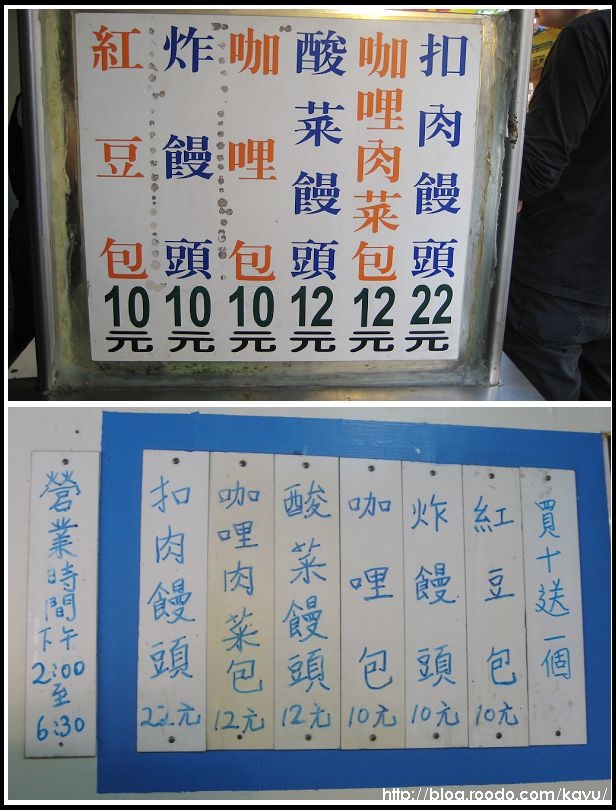 扣肉饅頭22元
咖哩肉菜包12元
酸菜饅頭12元
咖哩包10元
炸饅頭10元
紅豆包10元
營業時間下午2:00至6:30
扣肉饅頭22元
咖哩肉菜包12元
酸菜饅頭12元
咖哩包10元
炸饅頭10元
紅豆包10元
買十送一個
http://blog.roodo.com/kavu/